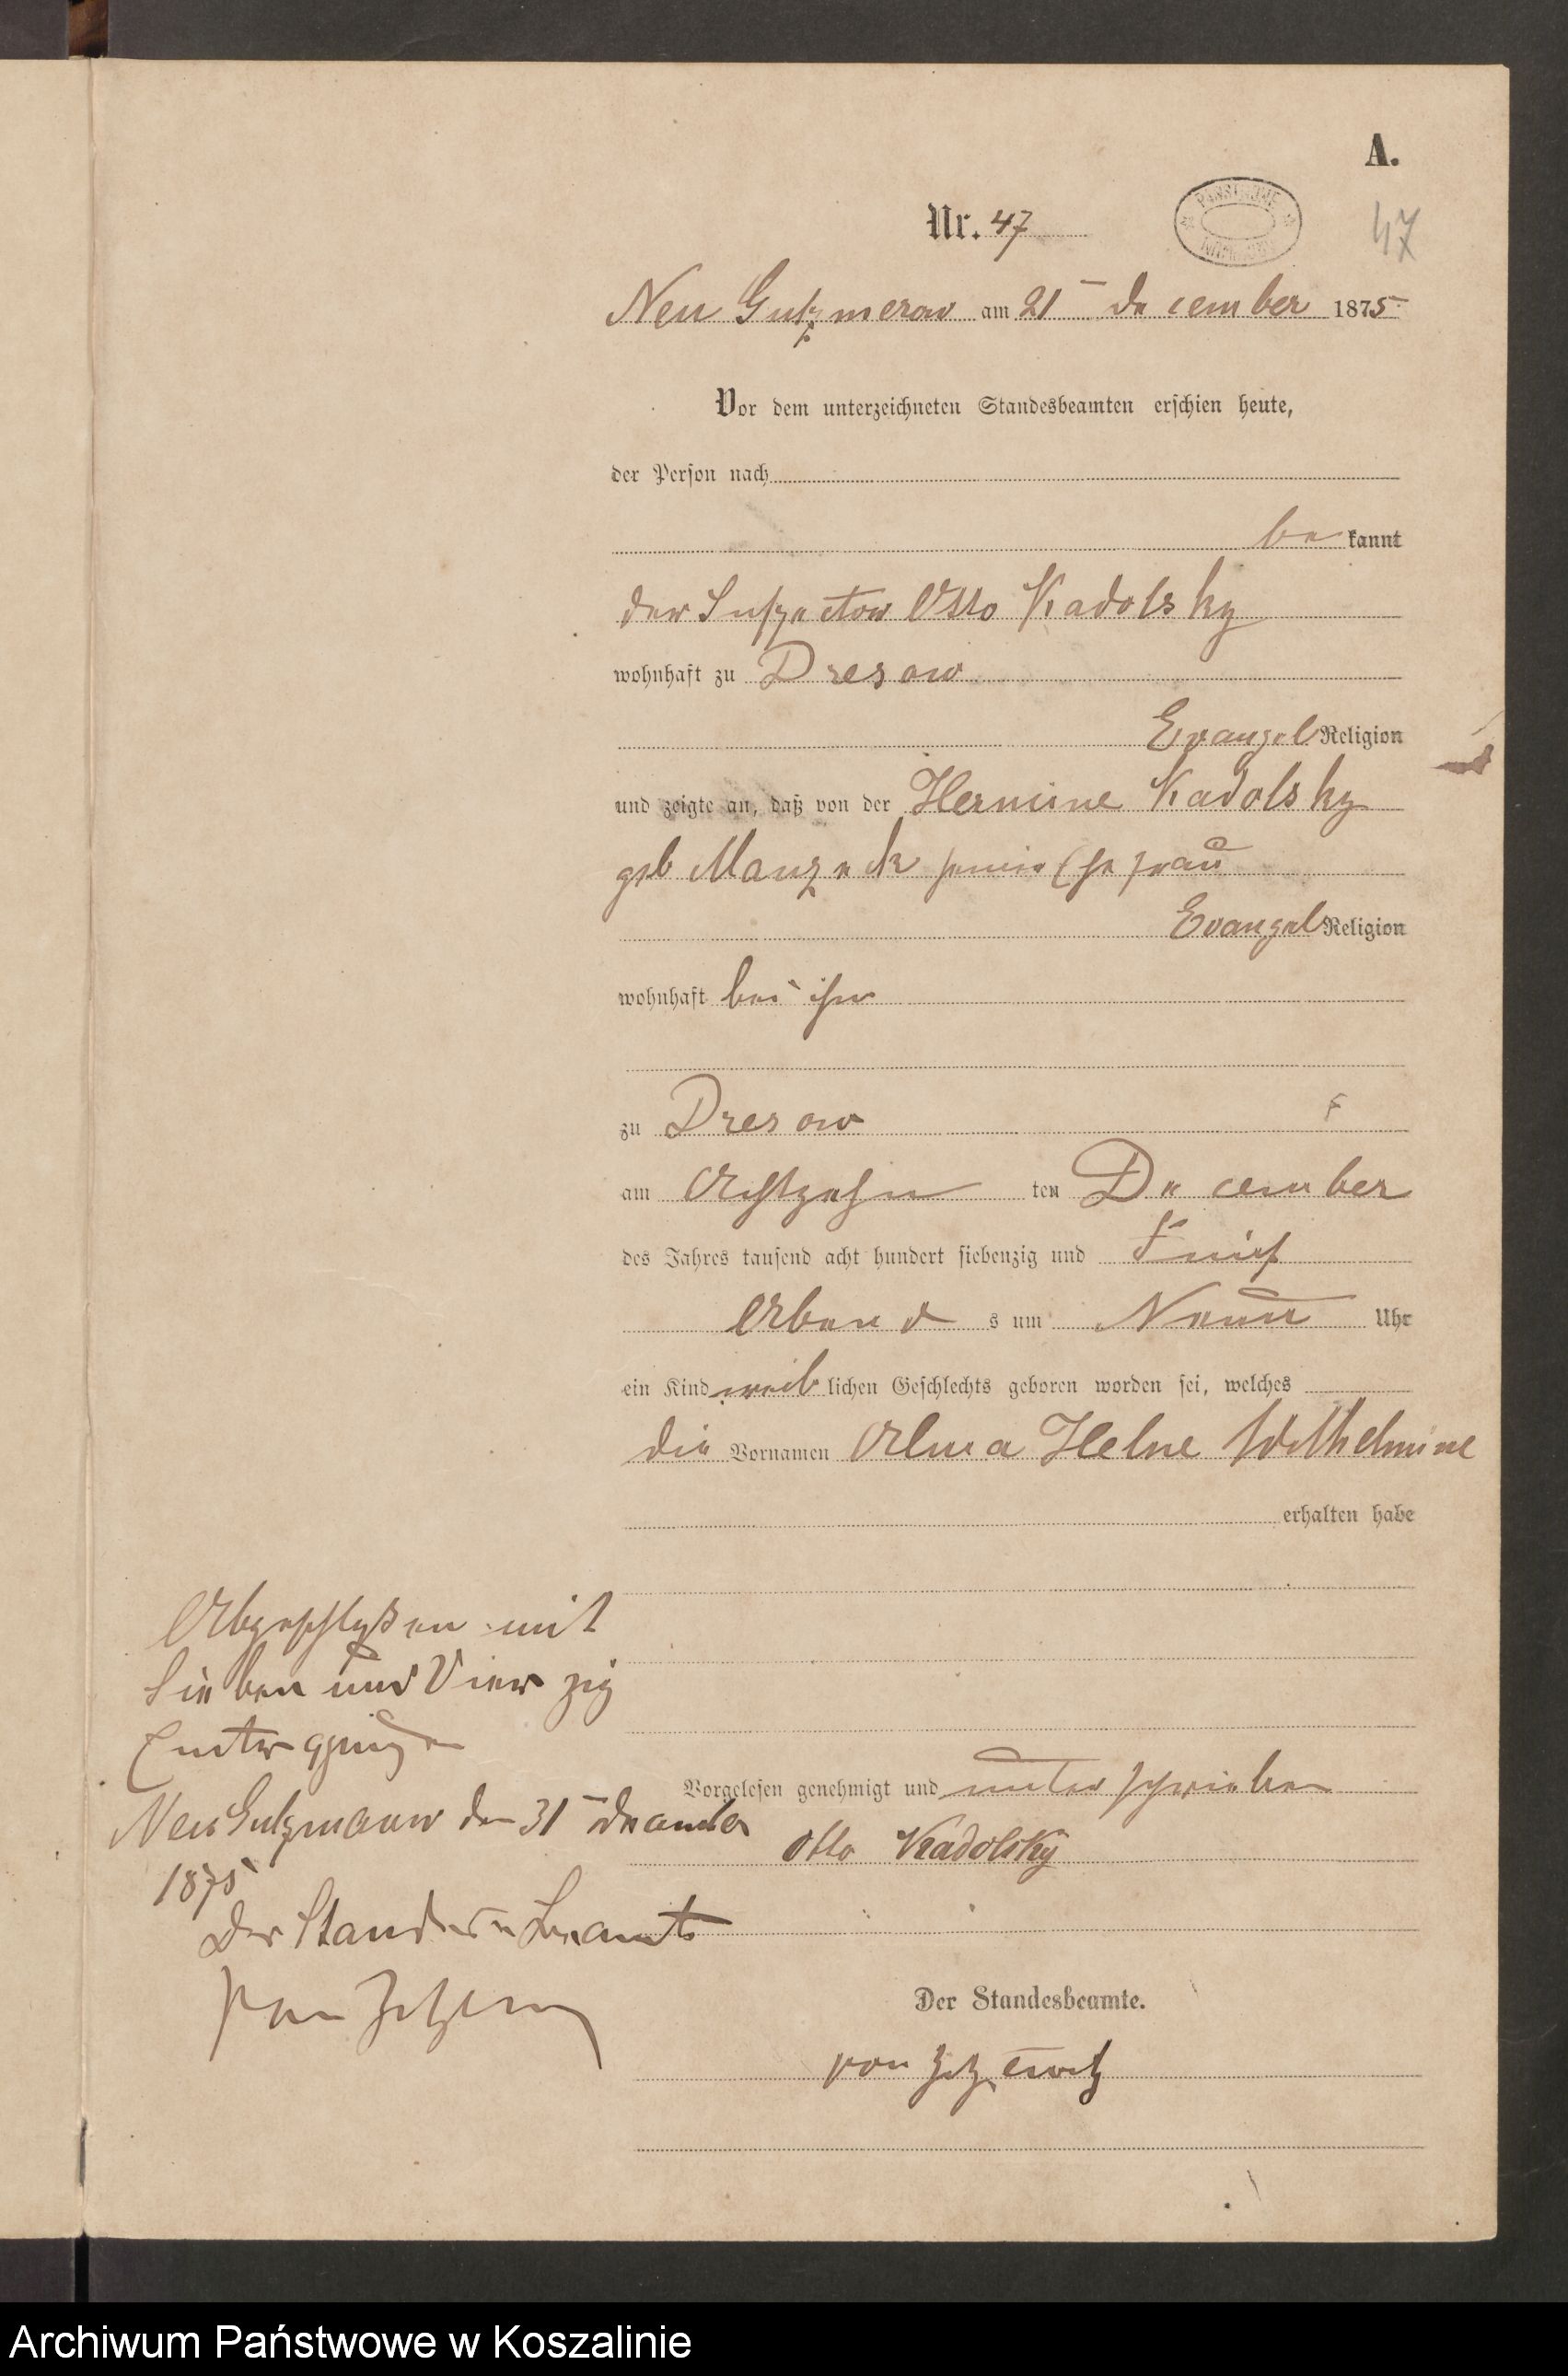 A.
Nr. 47
47
Neu Gutzmerow am 21 December 1875
Vor dem unterzeichneten Standesbeamten erschien heute,
der Person nach
be kannt
der Inspector Otto Kadolsky
wohnhaft zu Dresow
Evangel Religion
und zeigte an, daß von der Hermine Kadolsky
geb Manzeck seiner Ehefrau
Evangel Religion
wohnhaft bei ihm
zu Dresow
am Achtzehn ten December
des Jahres tausend acht hundert siebenzig und Fünf
Abend s um Neun Uhr
ein Kind weib lichen Geschlechts geboren worden sei, welches
die Vornamen Alma Helne Wilhelmine
erhalten habe
Vorgelesen genehmigt und unterschrieben
Otto Kadolsky
Der Standesbeamte.
von Zitzewitz
Abgeschlossen mit
Sieben und Vierzig
Eintragungen
Neu Gutzmerow den 31 December
1875
Der Standes Beamte
von
Archiwum Państwowe w Koszalinie